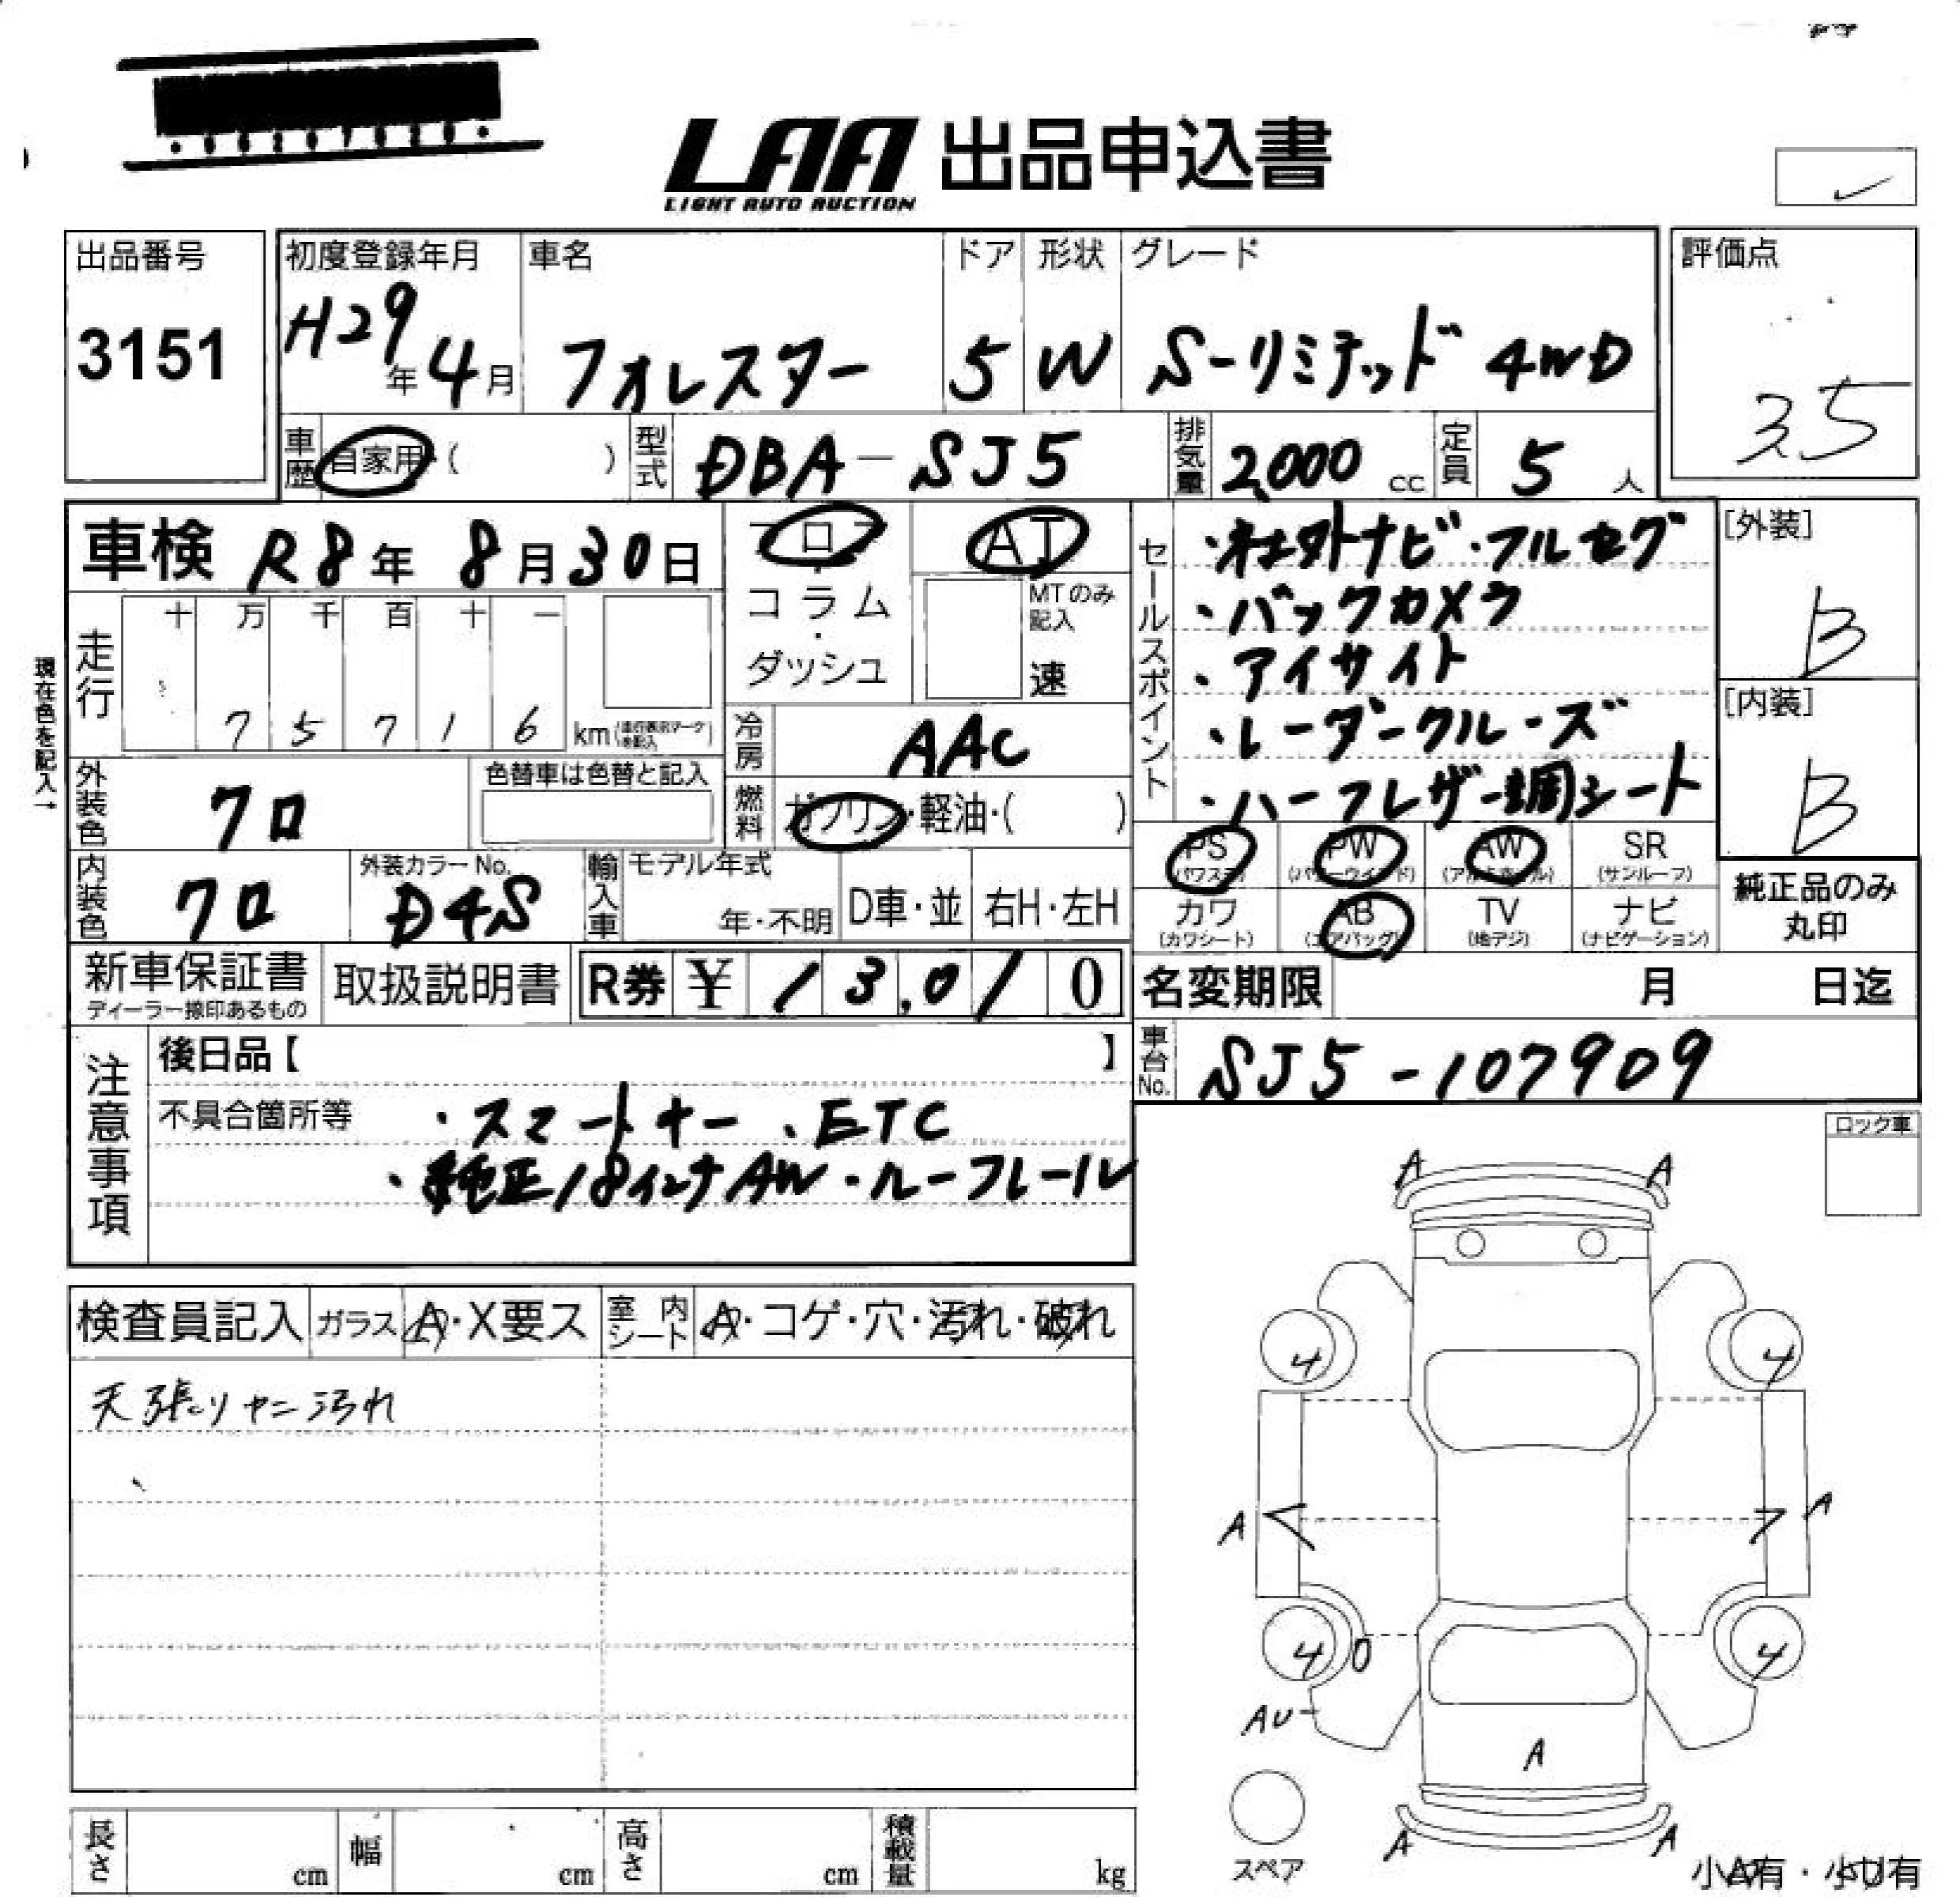 LAA 出品申込書
LIGHT AUTO AUCTION
出品番号
3151
初度登録年月
H29年 4月
車名
フォレスター
ドア
5
形状
W
グレード
S-リミテッド 4WD
評価点
3.5
車歴 自家用・( )
型式 DBA-SJ5
排気量 2,000 cc
定員 5 人
車検 R8年 8月30日
フロア・コラム・ダッシュ
AT
MTのみ記入
速
現在色を記入→
走行
十 万 千 百 十 一
7 5 7 1 6 km
冷房 AAC
外装色 クロ
色替車は色替と記入
燃料 ガソリン・軽油・( )
内装色 クロ
外装カラーNo.
D4S
輸入車
モデル年式
年・不明
D車・並
右H・左H
セールスポイント
・社外ナビ・フルセグ
・バックカメラ
・アイサイト
・レーダークルーズ
・ハーフレザー調シート
[外装]
B
[内装]
B
PS (パワステ)
PW (パワーウインド)
AW (アルミホイール)
SR (サンルーフ)
カワ (カワシート)
AB (エアバッグ)
TV (地デジ)
ナビ (ナビゲーション)
純正品のみ
丸印
新車保証書
ディーラー捺印あるもの
取扱説明書
R券 ¥ 13,010
名変期限 月 日迄
車台No. SJ5-107909
注意事項
後日品【 】
不具合箇所等 ・スマートキー ・ETC
・純正18インチAW・ルーフレール
ロック車
検査員記入
ガラス A・X要ス
室内シート A・コゲ・穴・汚れ・破れ
天張りヤニ汚れ
A A
4 4
A A
4 0 4
AU
A
A A
スペア
小A有・小U有
長さ cm
幅 cm
高さ cm
積載量 kg